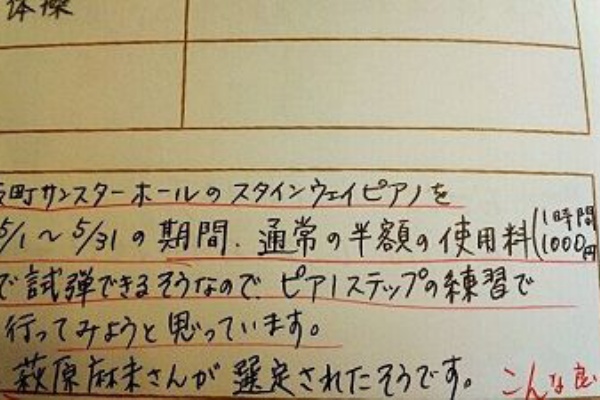 体操
町サンスターホールのスタインウェイピアノを
5/1～5/31の期間、通常の半額の使用料(1時間
1000円
で試弾できるそうなので、ピアノステップの練習で
行ってみようと思っています。
萩原麻未さんが選定されたそうです。 こんな良